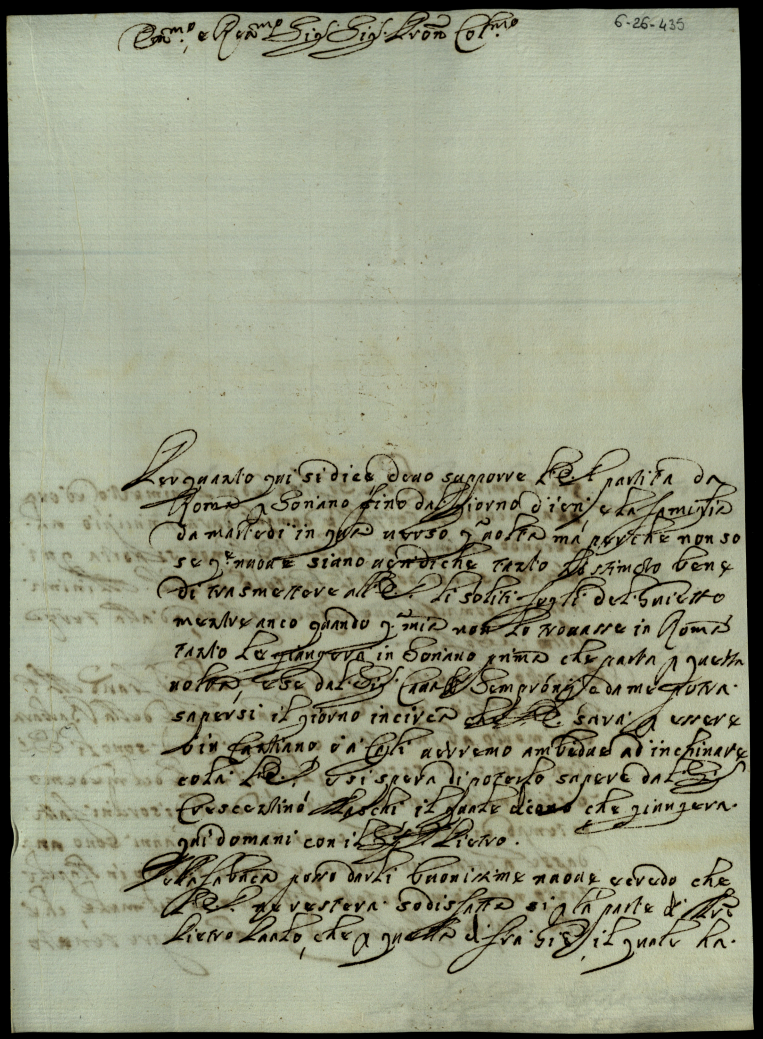 6-26-435
Em.mo, e R.mo Sig.r Sig.r Pron Col.mo
Per quanto qui si dice devo supporre V.E. partita da
Roma p Soriano fino dal giorno d'ieri e la famiglia
da martedi in qua verso q.a volta mà perche non so
se q.e nuove siano veridiche tanto hò stimato bene
di trasmettere all'E.V. li soliti fogli del
mentre anco quando q.a mia non la trovasse in Roma
tanto le giungera in Soriano prima che parta p questa
volta, e se dal Sig.r Cav. Sempronij e da me potra
sapersi il giorno incirca che V.E. sarà p essere
ò in Cantiano ò à Cagli verremo ambedue ad inchinare
colà V.E. e si spera di poterlo sapere dal Sig.r
Crescentino Paschi il quale dicono che giungera
qui domani con il Sig.r Pietro.
Della fabrica posso darli buonissime nuove e credo che
V.E. ne restera sodisfatta si p la parte di Pre
Pietro Paolo, che p quella di fra Gio, il quale ha